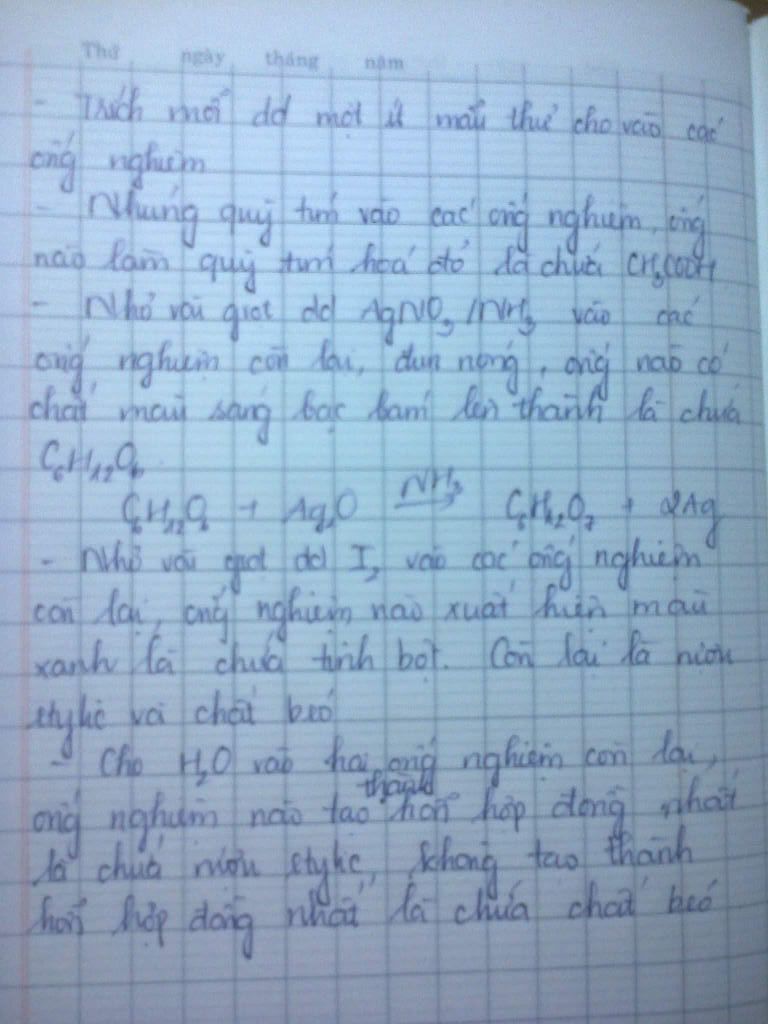 Thứ ngày tháng năm
- Trích mỗi dd một ít mẫu thử cho vào các
ống nghiệm
- Nhúng quỳ tím vào các ống nghiệm, ống
nào làm quỳ tím hoá đỏ là chứa CH₃COOH
- Nhỏ vài giọt dd AgNO₃/NH₃ vào các
ống nghiệm còn lại, đun nóng, ống nào có
chất màu sáng bạc bám lên thành là chứa
C₆H₁₂O₆
C₆H₁₂O₆ + Ag₂O NH₃→ C₆H₁₂O₇ + 2Ag
- Nhỏ vài giọt dd I₂ vào các ống nghiệm
còn lại, ống nghiệm nào xuất hiện màu
xanh là chứa tinh bột. Còn lại là rượu
etylic và chất béo
- Cho H₂O vào hai ống nghiệm còn lại,
ống nghiệm nào tạo thành hỗn hợp đồng nhất
là chứa rượu etylic, không tạo thành
hỗn hợp đồng nhất là chứa chất béo